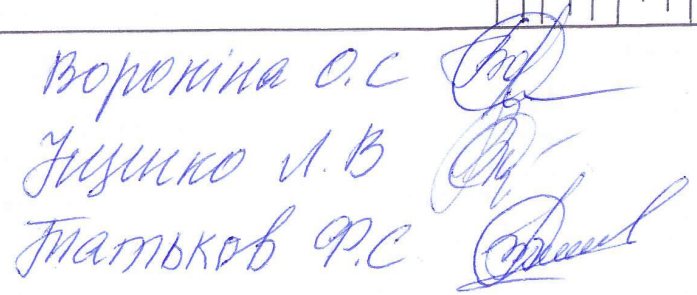 Вороніна О.С
Іщенко Л.В
Татьков Ф.С